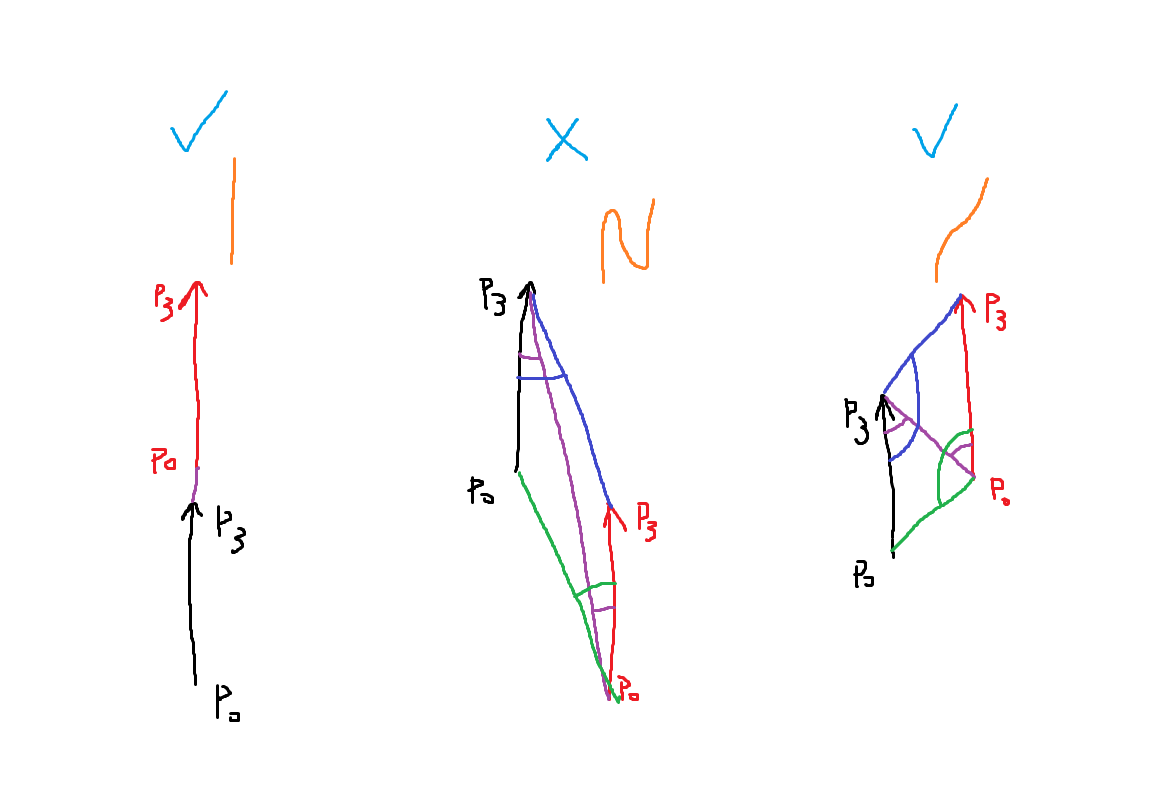 P₃
P₀
P₃
P₀
P₃
P₀
P₃
P₀
P₃
P₃
P₀
P₀